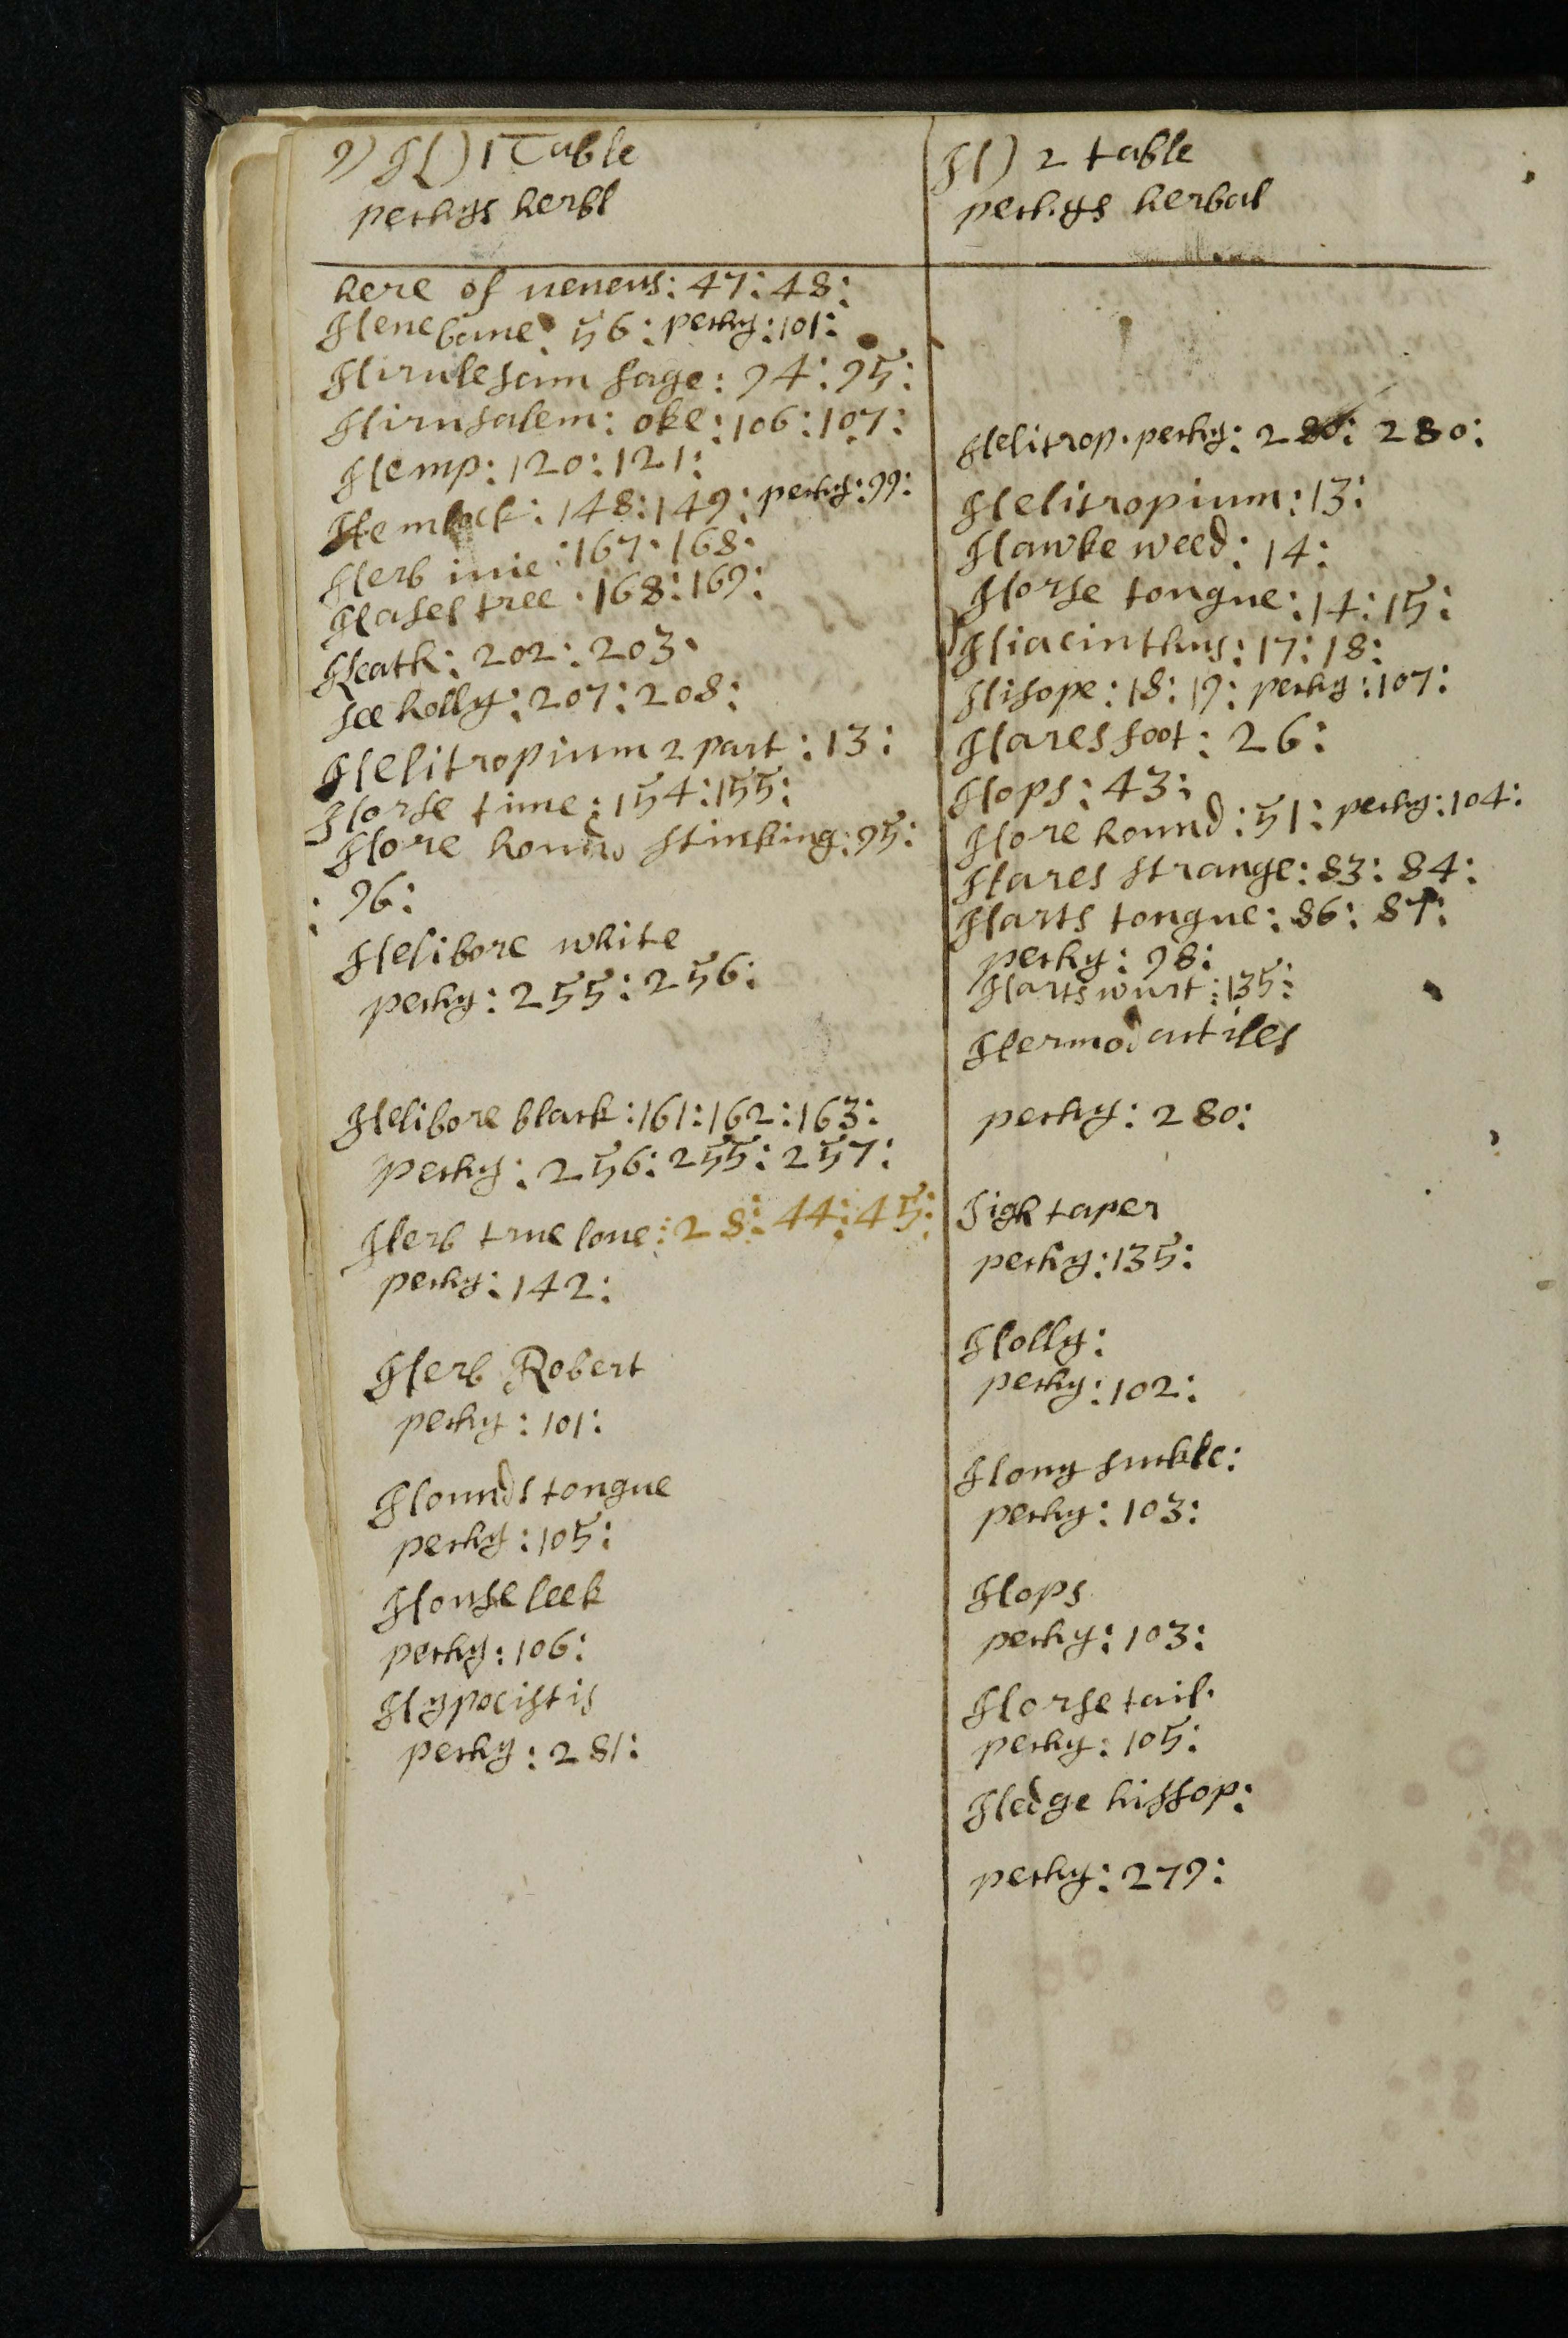 9) H() 1 Table
pechys herbl
here of venens: 47: 48:
Henebane: 56: pechy: 101:
Hirulesam sage: 94: 95:
Hirusalem: oke: 106: 107:
Hemp: 120: 121:
Hemlock: 148: 149: pechy: 99:
Herb iuie: 167: 168:
Hasel tree: 168: 169:
Heath: 202: 203:
see holly: 207: 208:
Helitropium 2 part: 13:
Horse time: 154: 155:
Hore hound stinking: 95:
96:
Helibore white
pechy: 255: 256:
Helibore black: 161: 162: 163:
pechy: 256: 255: 257:
Herb true loue: 28: 44: 45:
pechy: 142:
Herb Robert
pechy: 101:
Hounds tongue
pechy: 105:
House leek
pechy: 106:
Hypocistis
pechy: 281:
H) 2 table
pechys herbal
Helitrop. pechy: 280: 280:
Helitropium: 13:
Hawke weed: 14:
Horse tongue: 14: 15:
Hiacinthus: 17: 18:
Hisope: 18: 19: pechy: 107:
Hares foot: 26:
Hops: 43:
Hore hound: 51: pechy: 104:
Hares strange: 83: 84:
Harts tongue: 86: 87:
pechy: 98:
Harts wurt: 135:
Hermodactiles
pechy: 280:
High taper
pechy: 135:
Holly:
pechy: 102:
Hony suckle:
pechy: 103:
Hops
pechy: 103:
Horse tail.
pechy: 105:
Hedge hissop:
pechy: 279: